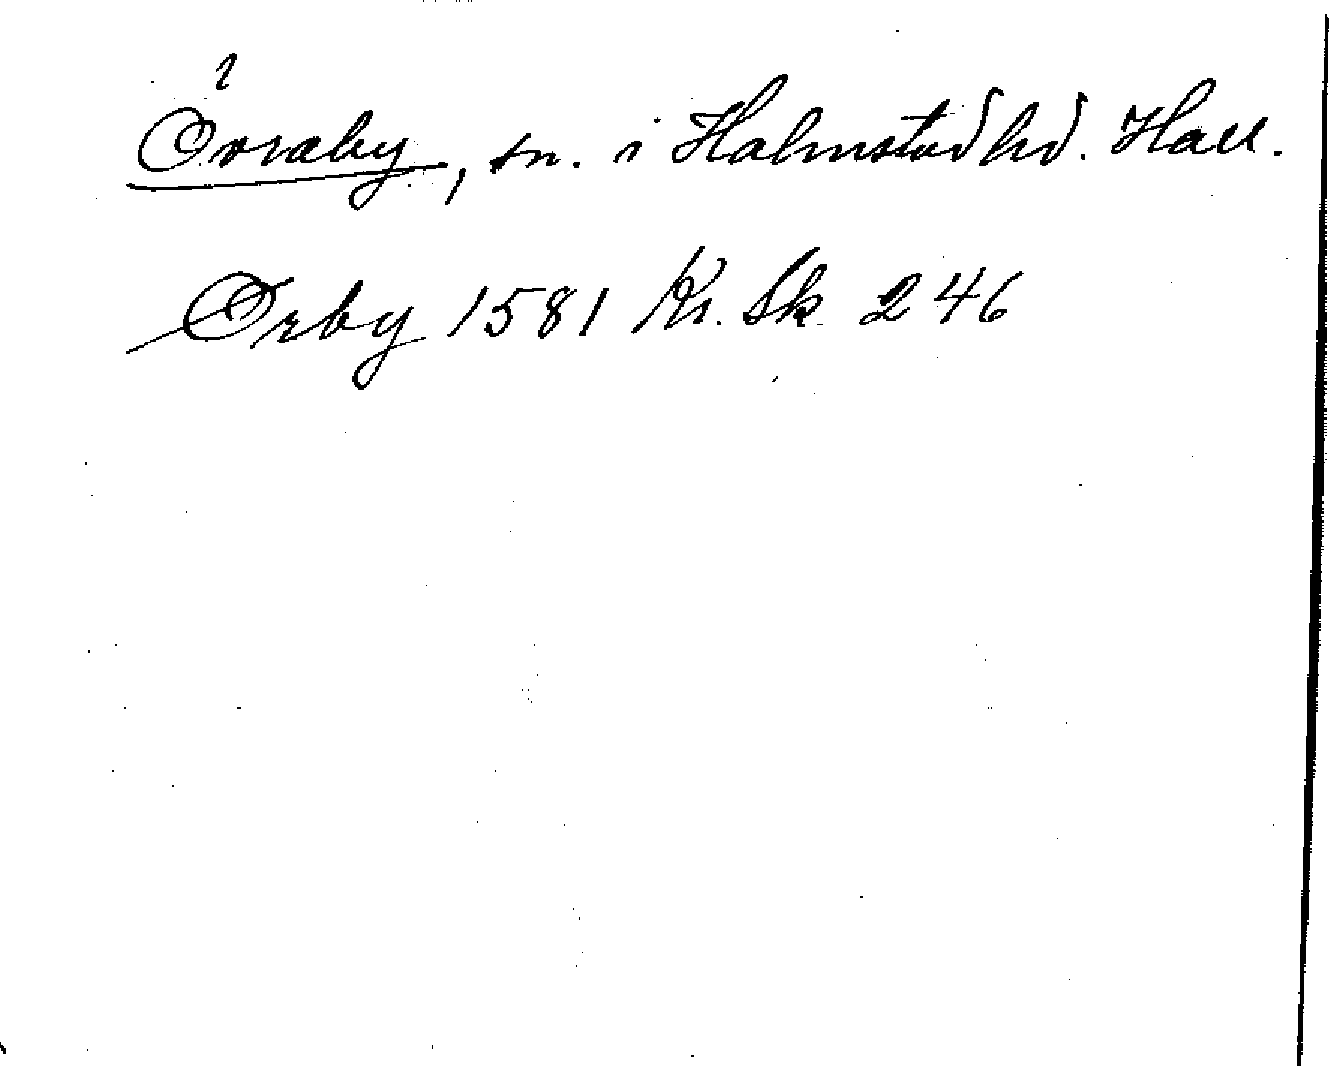 Övraby, sn. i Halmstad hd. Hall.
Ørby 1581 Kr. Sk 246